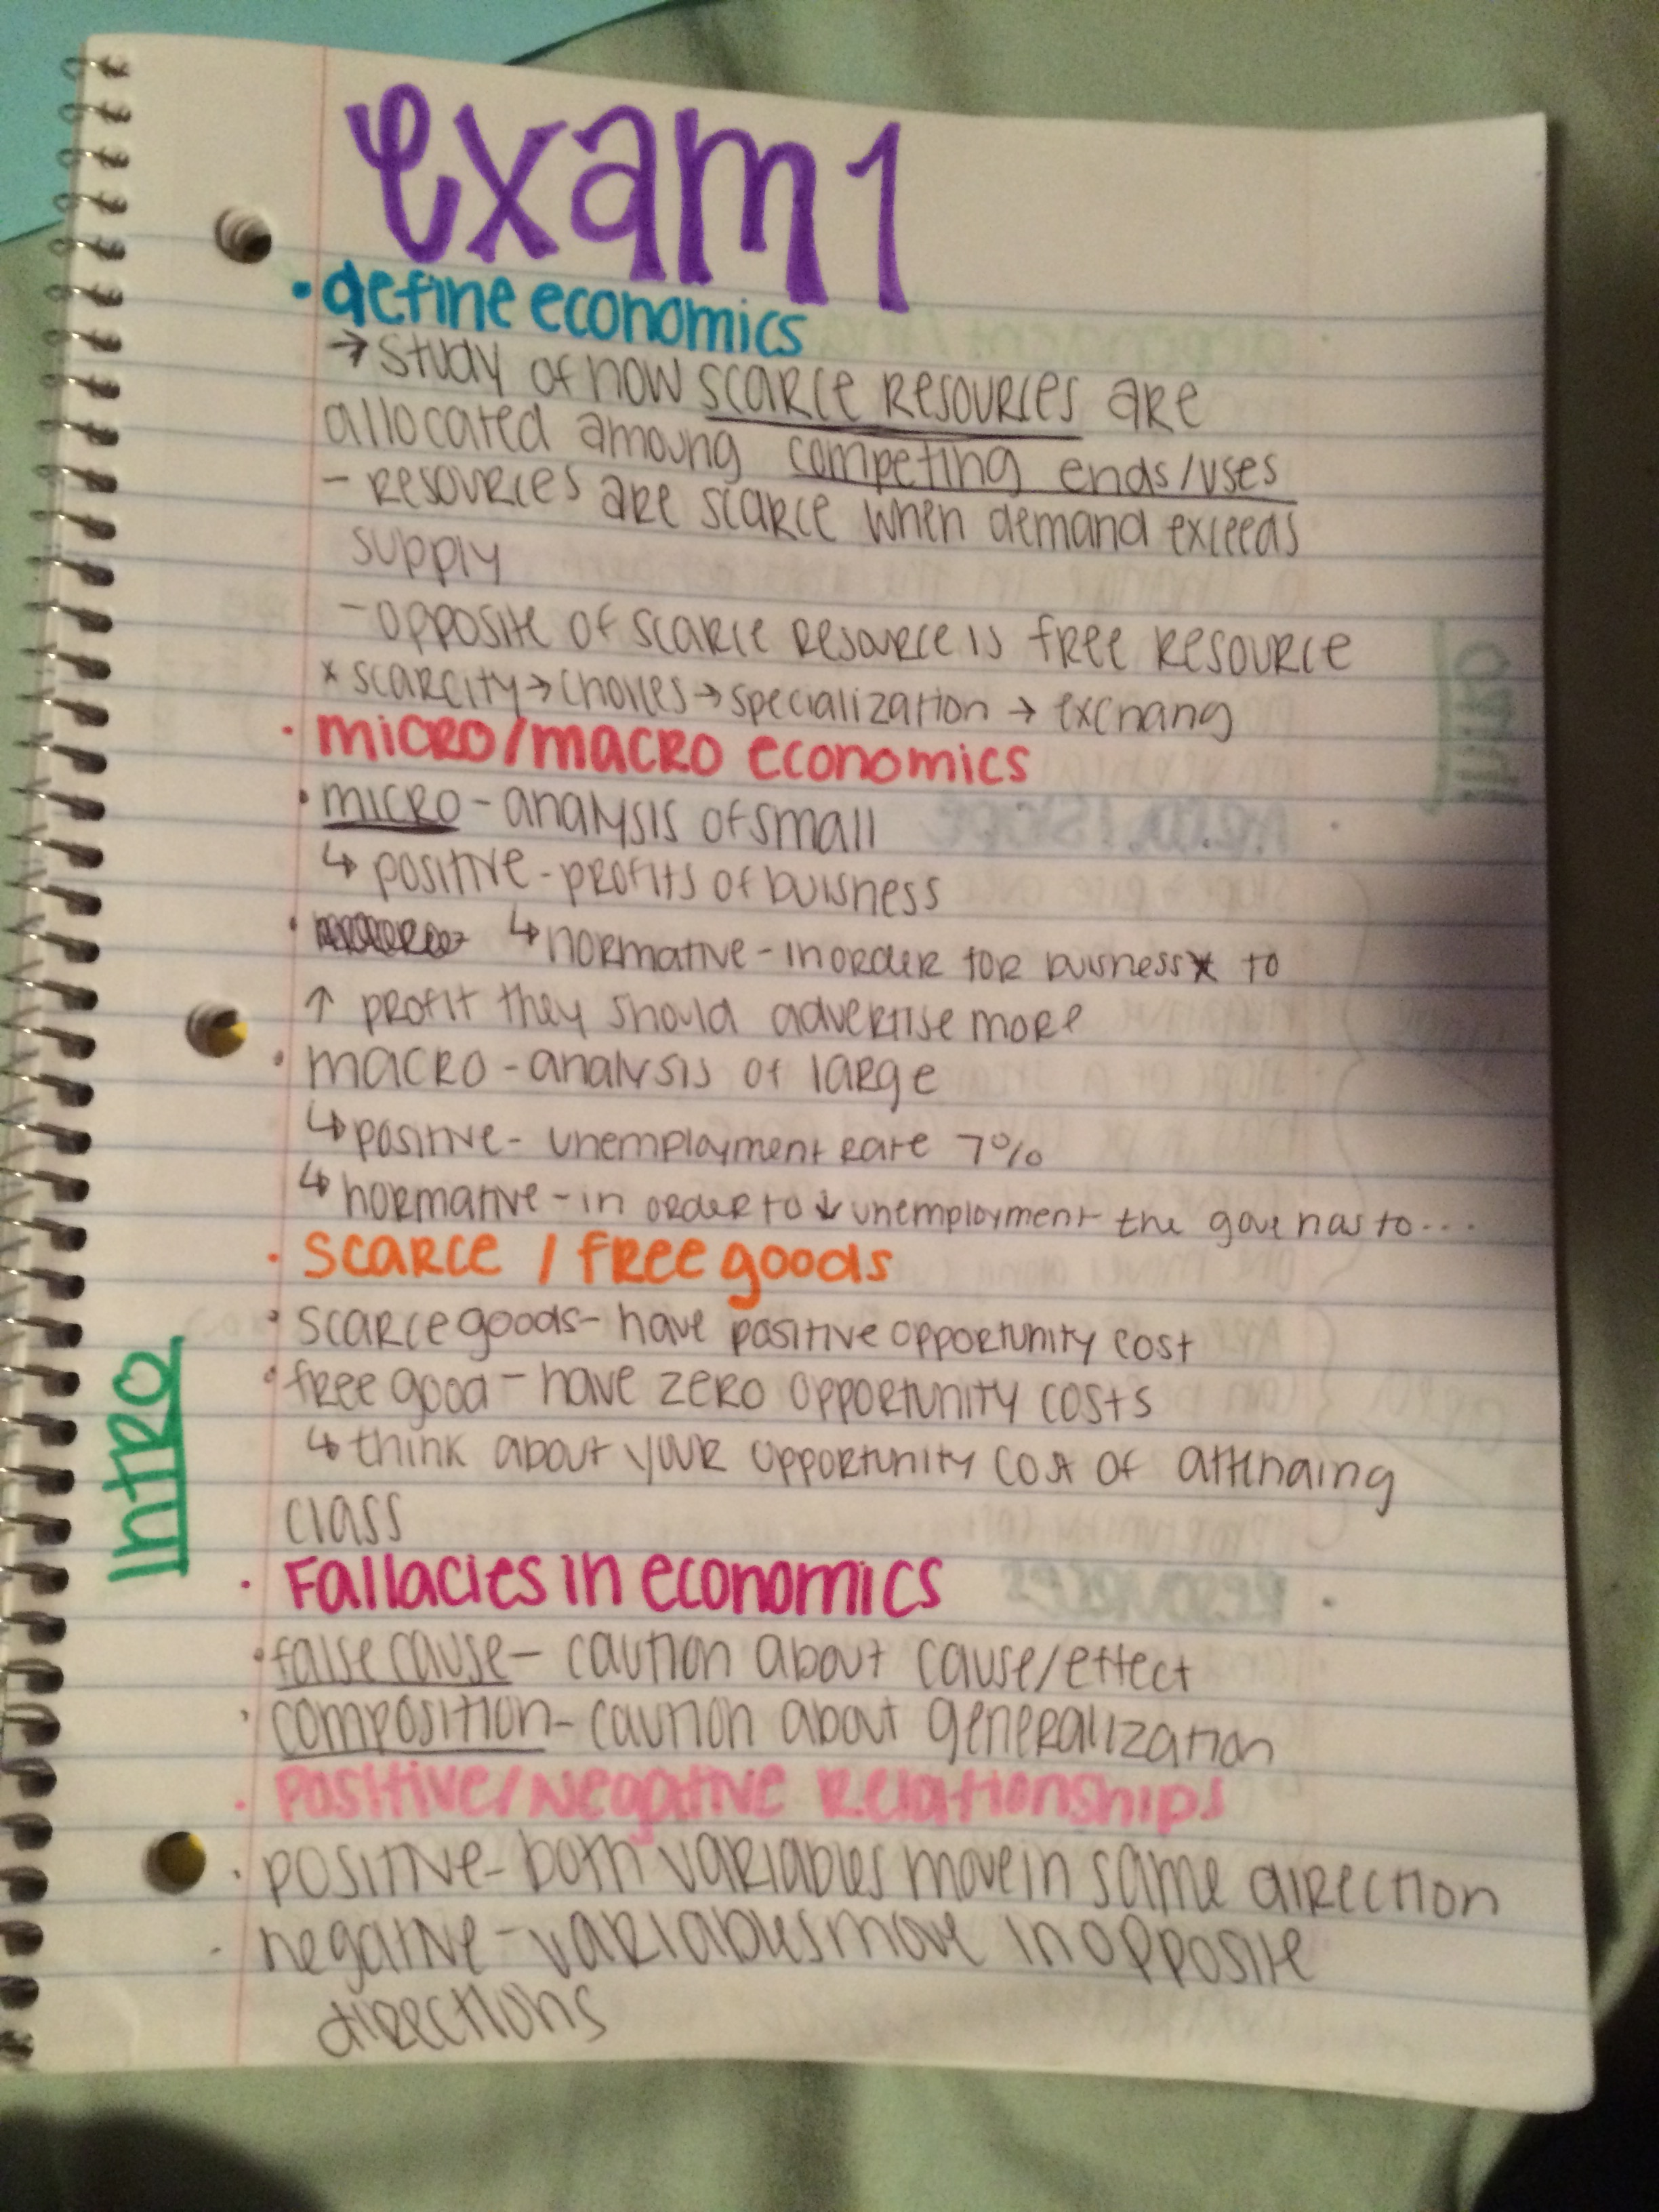 exam 1
• define economics
→ study of how scarce resources are
allocated amoung competing ends/uses
- resources are scarce when demand exceeds
supply
- opposite of scarce resource is free resource
* scarcity → choices → specialization → exchang
• micro/macro economics
• micro - analysis of small
↳ positive - profits of buisness
• ↳ normative - in order for buisness to
↑ profit they should advertise more
• macro - analysis of large
↳ positive - unemployment rate 7%
↳ normative - in order to ↓ unemployment the gove has to...
• scarce / free goods
• scarce goods - have positive opportunity cost
• free good - have zero opportunity costs
↳ think about your opportunity cost of attending
class
INTRO
• Fallacies in economics
• false cause - caution about cause/effect
• composition - caution about generalization
• Positive/Negative Relationships
• positive - both variables move in same direction
- negative - variables move in opposite
directions